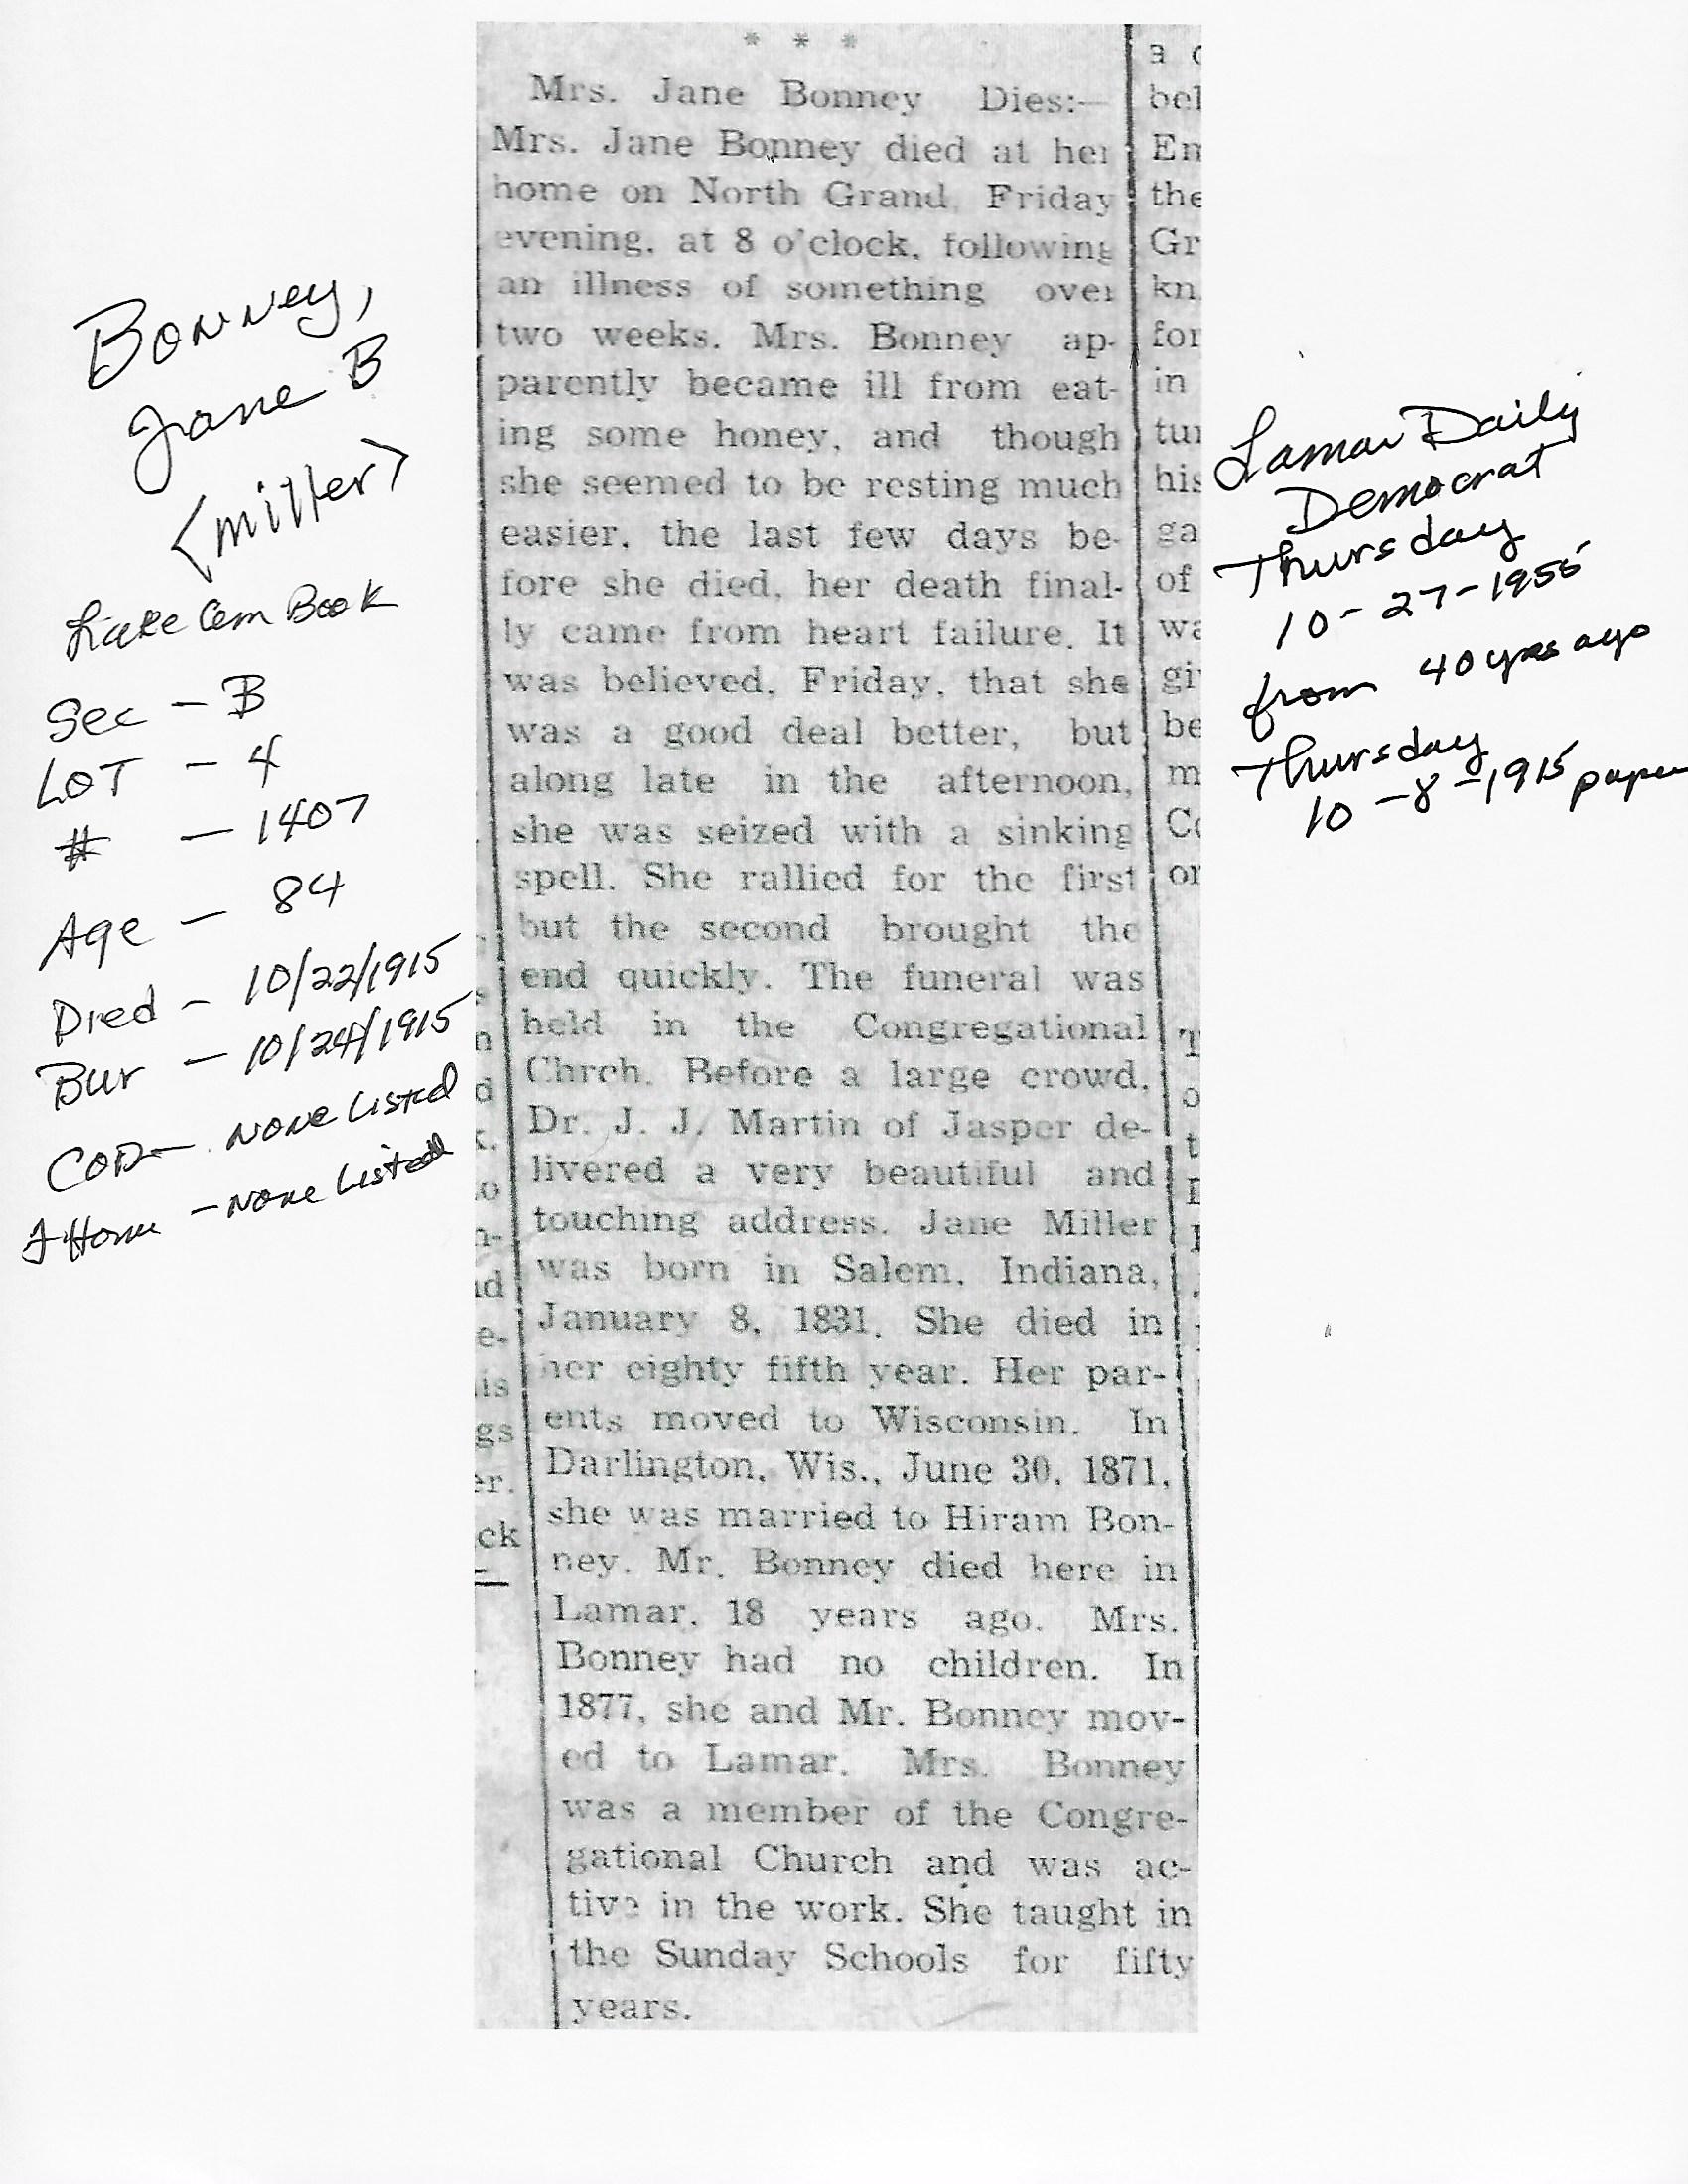 * * *
Mrs. Jane Bonney Dies:—
Mrs. Jane Bonney died at her
home on North Grand, Friday
evening, at 8 o'clock, following
an illness of something over
two weeks. Mrs. Bonney ap-
parently became ill from eat-
ing some honey, and though
she seemed to be resting much
easier, the last few days be-
fore she died, her death final-
ly came from heart failure. It
was believed, Friday, that she
was a good deal better, but
along late in the afternoon,
she was seized with a sinking
spell. She rallied for the first
but the second brought the
end quickly. The funeral was
held in the Congregational
Chrch. Before a large crowd,
Dr. J. J. Martin of Jasper de-
livered a very beautiful and
touching address. Jane Miller
was born in Salem, Indiana,
January 8, 1831. She died in
her eighty fifth year. Her par-
ents moved to Wisconsin. In
Darlington, Wis., June 30, 1871,
she was married to Hiram Bon-
ney. Mr. Bonney died here in
Lamar, 18 years ago. Mrs.
Bonney had no children. In
1877, she and Mr. Bonney mov-
ed to Lamar. Mrs. Bonney
was a member of the Congre-
gational Church and was ac-
tive in the work. She taught in
the Sunday Schools for fifty
years.
Bonney,
Jane B
<miller>
Lake Cem Book
Sec - B
LOT - 4
# - 1407
Age - 84
Died - 10/22/1915
Bur - 10/24/1915
COD - None Listed
F Home - None Listed
Lamar Daily
Democrat
Thursday
10-27-1955
from 40 yrs ago
Thursday
10-8-1915 paper